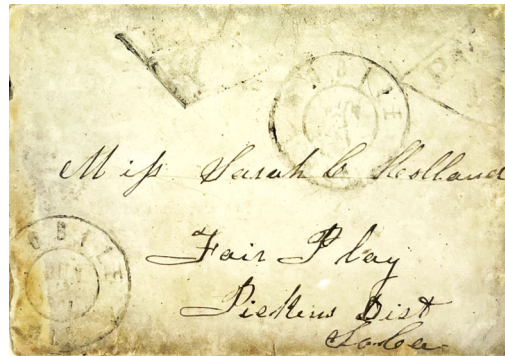 MOBILE
PAI
Miss Sarah C Holland
Fair Play
Pickens Dist
So.Ca.
MOBILE